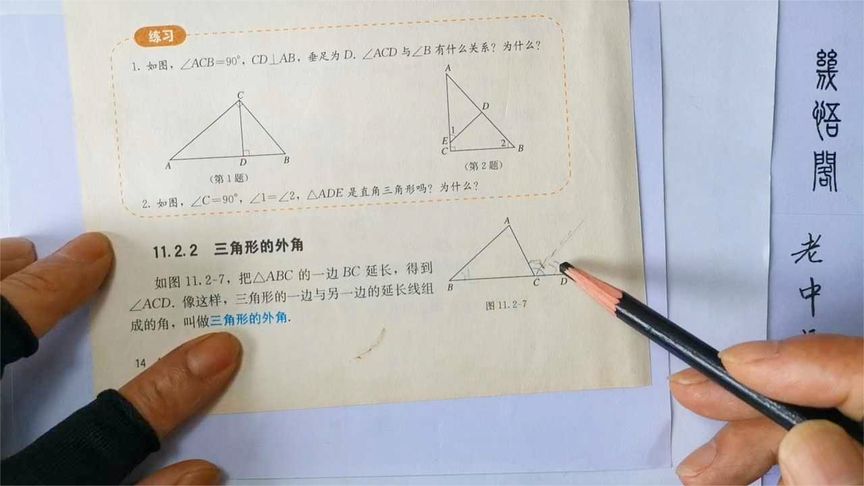 练习
1. 如图，∠ACB=90°，CD⊥AB，垂足为 D. ∠ACD 与∠B 有什么关系？为什么？
C
A D B
(第 1 题)
A
D
1
E
C
2
B
(第 2 题)
2. 如图，∠C=90°，∠1=∠2，△ADE 是直角三角形吗？为什么？
11.2.2 三角形的外角
如图 11.2-7，把△ABC 的一边 BC 延长，得到
∠ACD. 像这样，三角形的一边与另一边的延长线组
成的角，叫做三角形的外角.
A
B C D
图 11.2-7
14
幾悟閣
老中